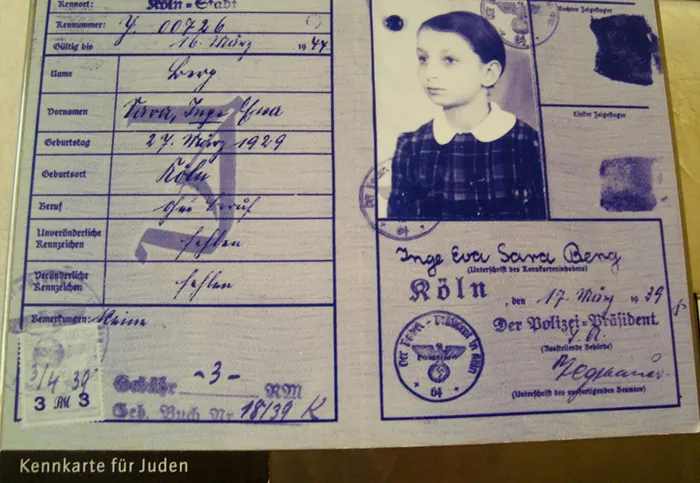 Kennort: Köln-Stadt
Kennummer: J. 00726
Gültig bis 16. März 1944
Name Berg
Vornamen Sara, Inge Eva
Geburtstag 27. März 1929
Geburtsort Köln
Beruf ohne Beruf
Unveränderliche Kennzeichen fehlen
Veränderliche Kennzeichen fehlen
Bemerkungen: Keine
J
3/4 39
3 RM 3
Gebühr -3- RM
Geb. Buch Nr 18/39 K
Rechter Zeigefinger
Linker Zeigefinger
Inge Eva Sara Berg
(Unterschrift des Kennkarteninhabers)
Köln, den 17. März 1939
Der Polizei-Präsident
I. A.
(Ausstellende Behörde)
Der Polizei-Präsident in Köln
64
(Unterschrift des ausfertigenden Beamten)
Kennkarte für Juden